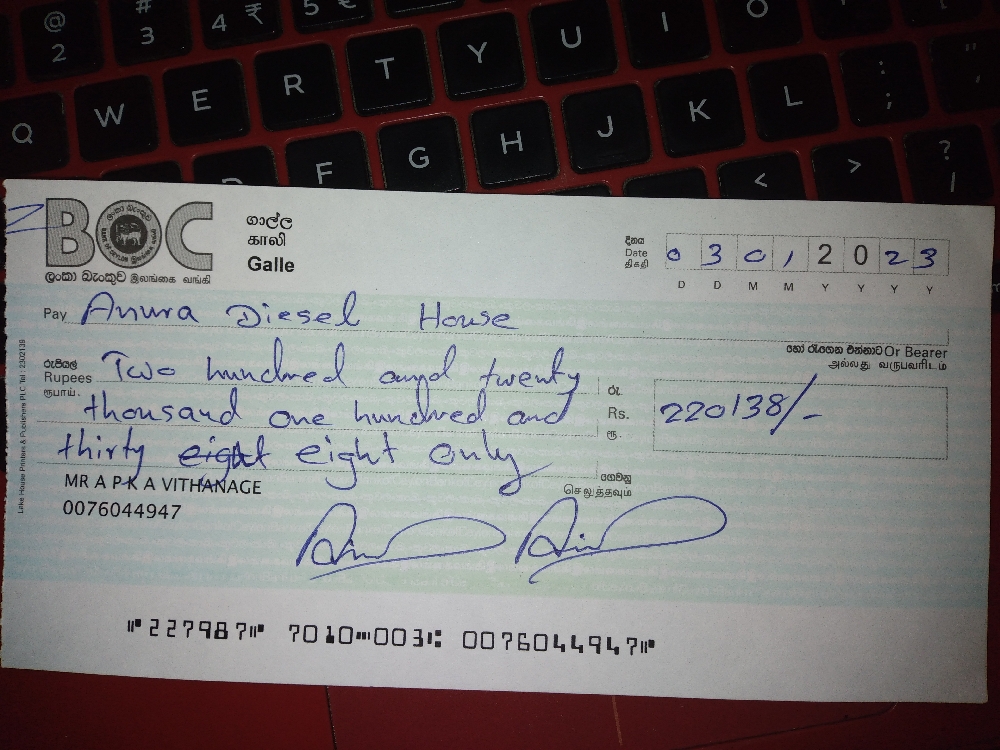 @ # ₹ €
2 3 4 5
Q W E R T Y U I O
F G H J K L : ;
< > ? /
BOC
ලංකා බැංකුව இலங்கை வங்கி
ගාල්ල
காலி
Galle
දිනය
Date
திகதி
0 3 0 1 2 0 2 3
D D M M Y Y Y Y
Pay Anura Diesel House
හෝ රැගෙන එන්නාට Or Bearer
அல்லது வருபவரிடம்
රුපියල්
Rupees
ரூபாய்
Two hundred and twenty
thousand one hundred and
thirty eight eight only
රු.
Rs.
ரூ.
220138/-
ගෙවනු
செலுத்தவும்
MR A P K A VITHANAGE
0076044947
Lake House Printers & Publishers PLC Tel : 2302139
⑈227987⑈ 7010⑉003⑆ 0076044947⑈